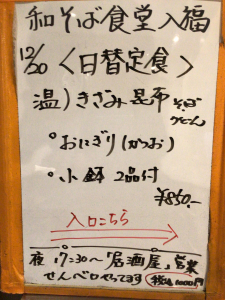 和そば食堂入福
12/20 〈日替定食〉
温)きざみ昆布 そば うどん
おにぎり(かつお)
小鉢 2品付
¥850.-
入口こちら
夜 17:30〜「居酒屋」営業
せんべロやってます 税込1000円